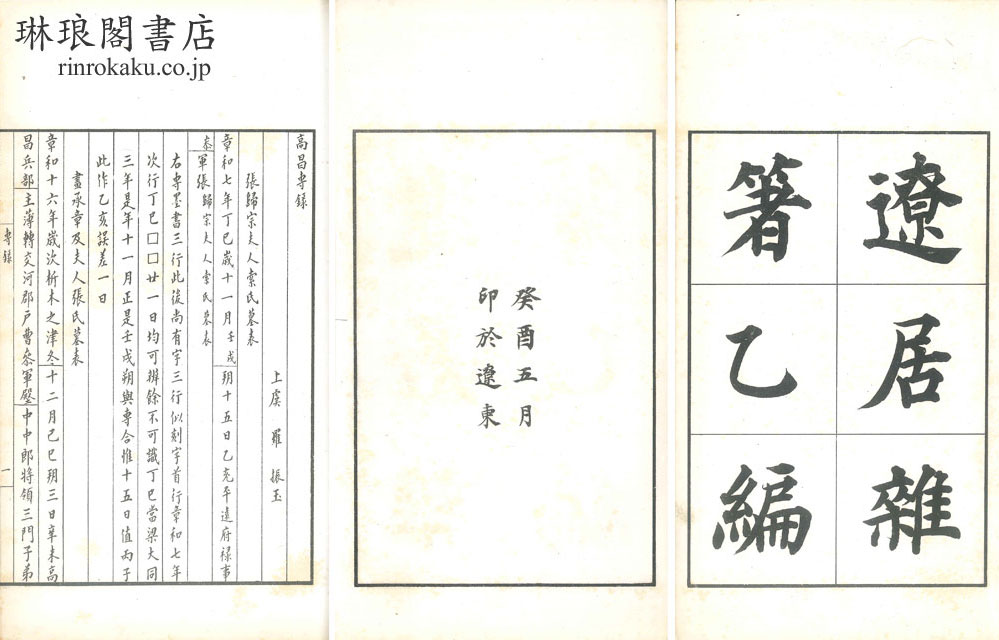 琳琅閣書店
rinrokaku.co.jp
遼居雜
箸乙編
癸酉五月
印於遼東
高昌專錄
上虞羅振玉
張歸宗夫人索氏墓表
章和七年丁巳歲十一月壬戌朔十五日乙亥平遠府禄事
叅軍張歸宗夫人索氏墓表
右專墨書三行此後尚有字三行似刻字首行章和七年
次行丁巳□□廿一日均可辨餘不可識丁巳當梁大同
三年是年十一月正是壬戌朔與專合惟十五日值丙子
此作乙亥誤差一日
畫承章及夫人張氏墓表
章和十六年歲次析木之津冬十二月己巳朔三日辛未高
昌兵部主簿轉交河郡戶曹叅軍殿中中郎將領三門子弟
專錄
一